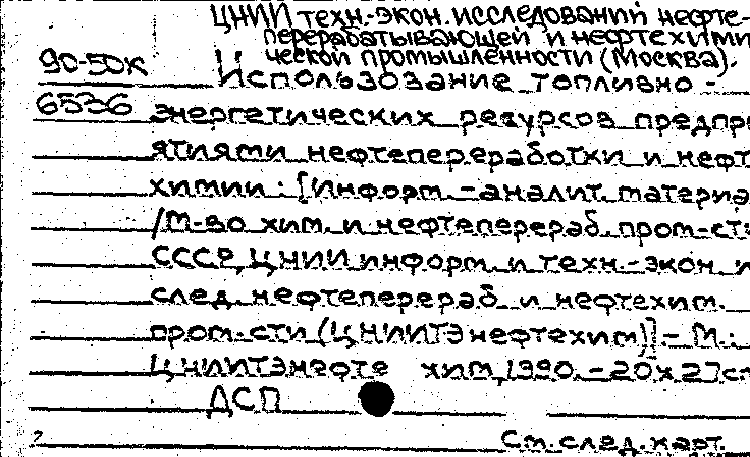 ЦНИИ техн.-экон. исследований нефте-
перерабатывающей и нефтехими
ческой промышленности (Москва).
90-50К
Использование топливно-
6536
энергетических ресурсов предпр
ятиями нефтепереработки и нефт
химии: [Информ.-аналит. материа
/М-во хим. и нефтеперераб. пром-сти
СССР, ЦНИИ информ. и техн.-экон. и
след. нефтеперераб. и нефтехим.
пром-сти (ЦНИИТЭнефтехим)]. - М.:
ЦНИИТЭнефте хим, 1990. - 20х27с
ДСП
См. след. карт.